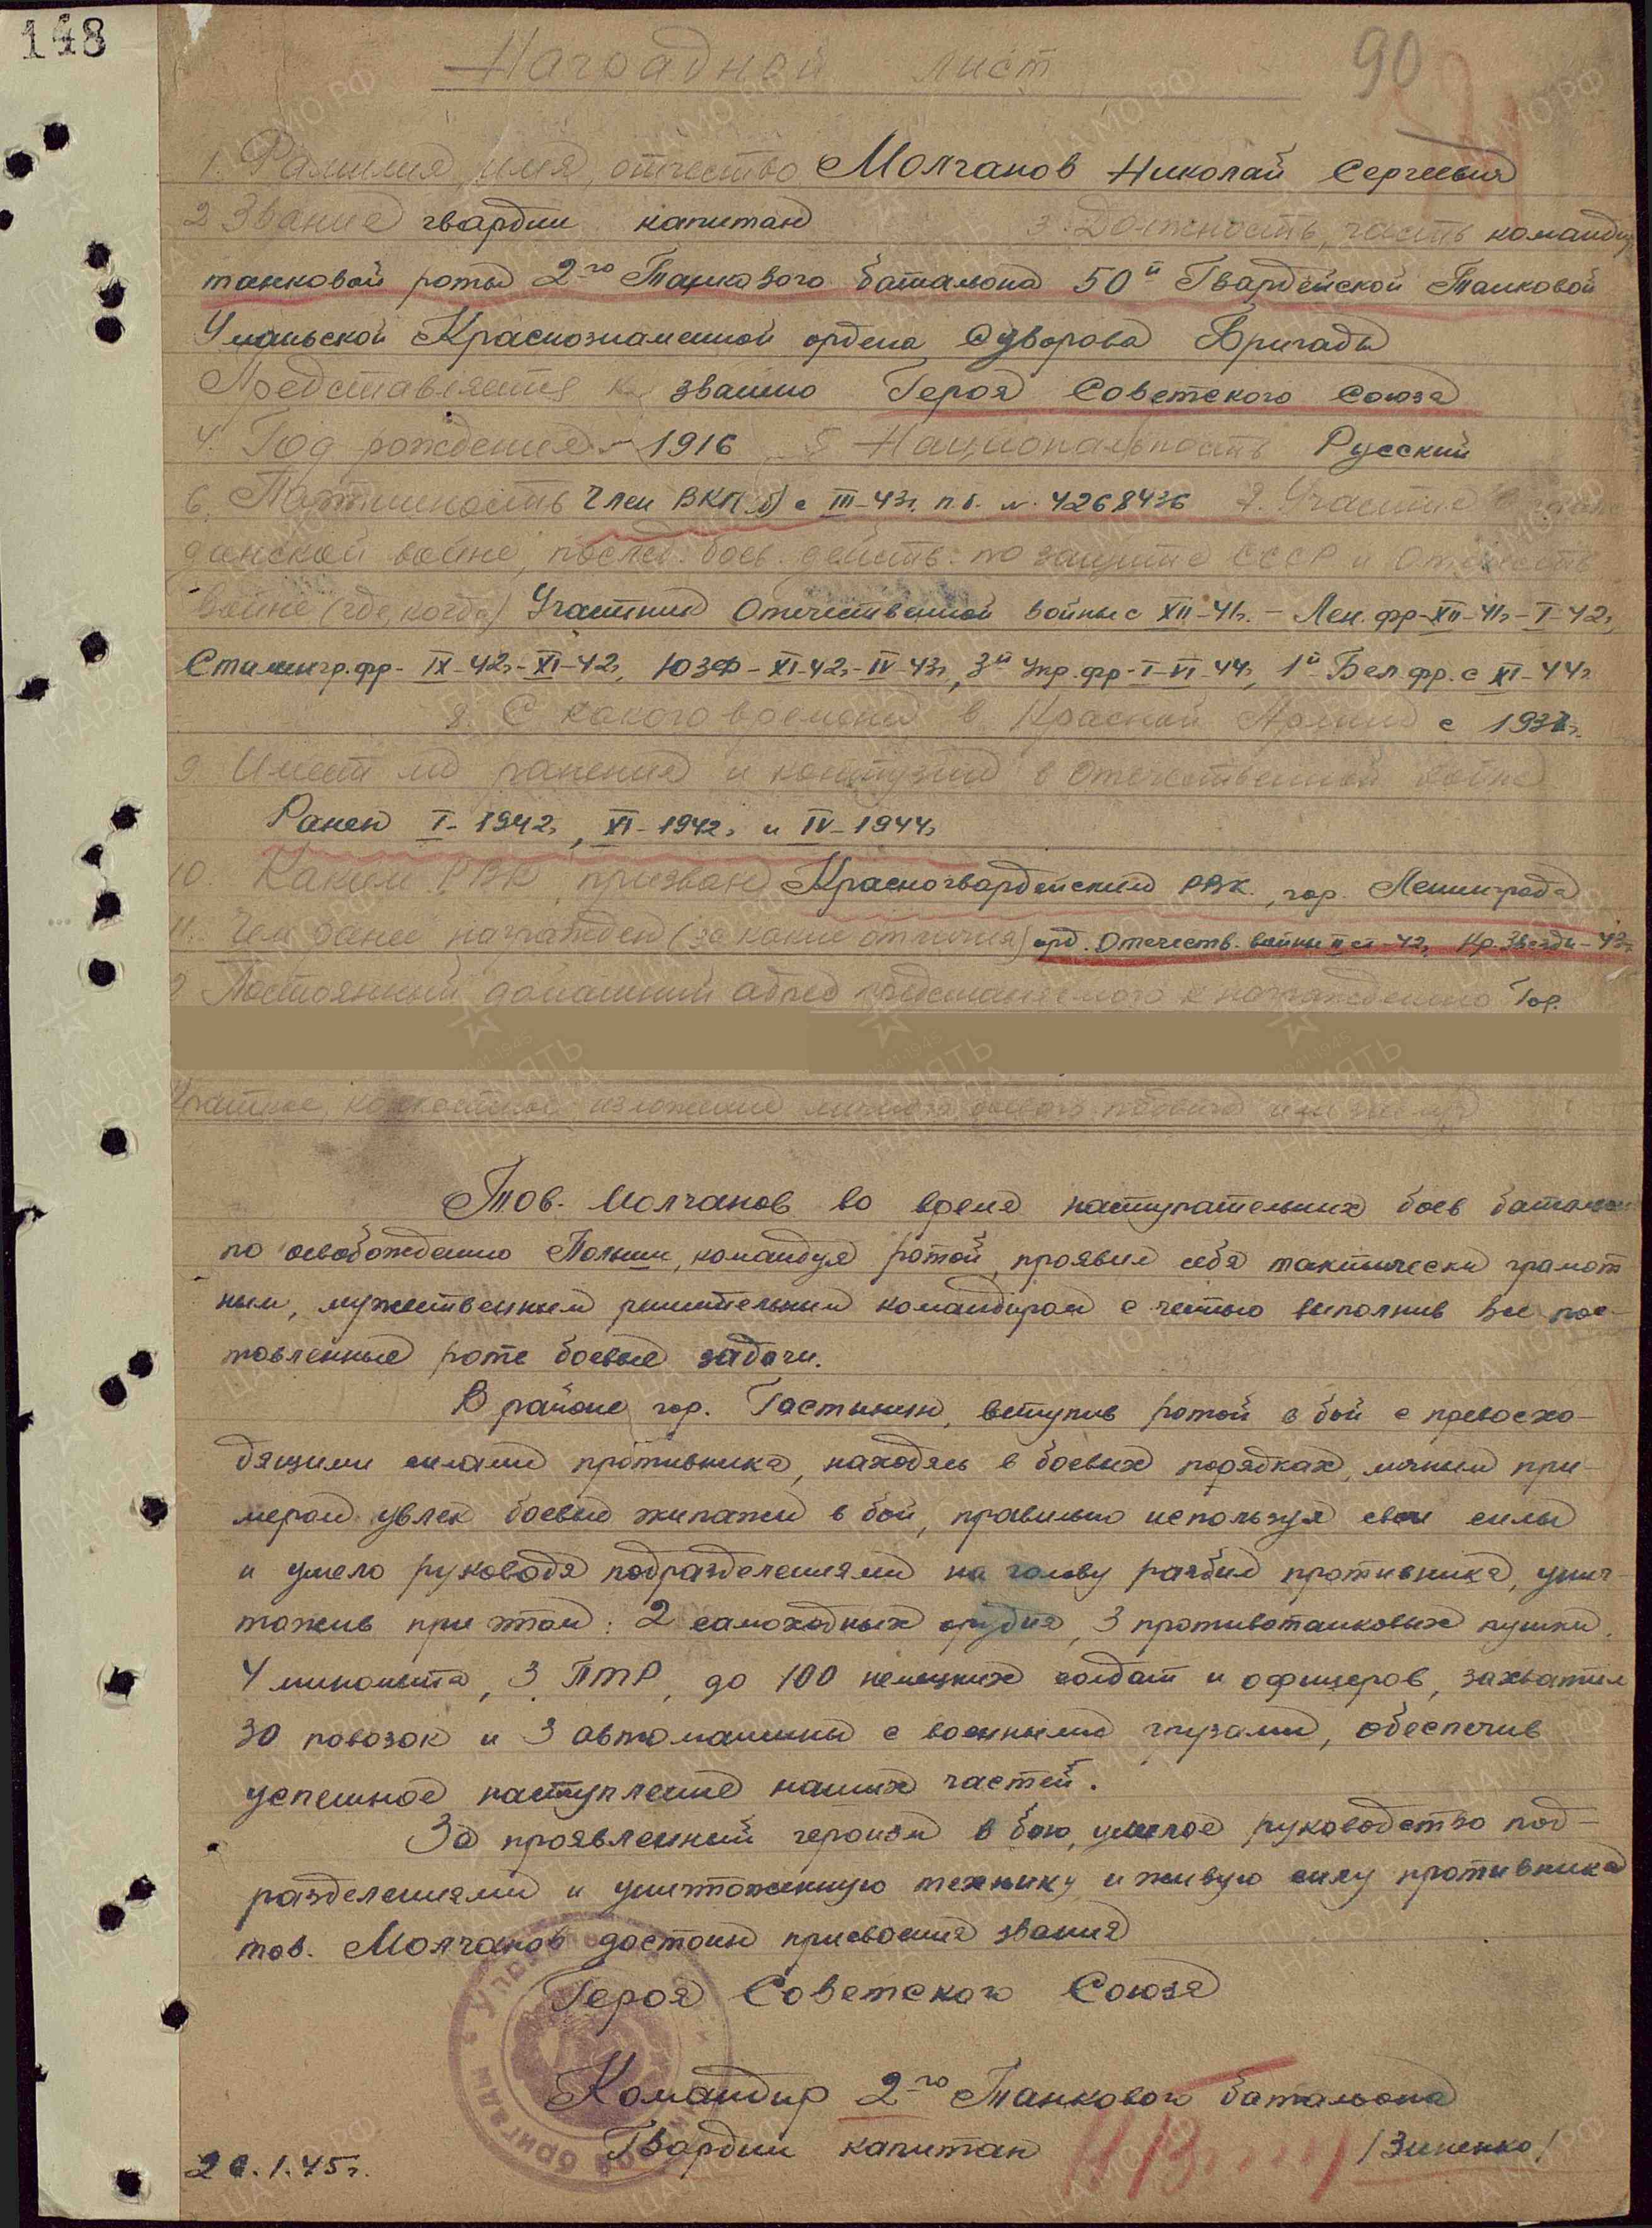 148
90
Наградной лист
1. Фамилия, имя, отчество Молчанов Николай Сергеевич
2 Звание гвардии капитан 3. Должность, часть командир
танковой роты 2го Танкового батальона 50й Гвардейской Танковой
Уманьской Краснознаменной ордена Суворова Бригады
Представляется к званию Героя Советского Союза
4. Год рождения - 1916 5 Национальность Русский
6. Партийность Член ВКП(б) с III-43г. п.б. № 4268436 7. Участие в граж
данской войне, послед. боев. действ. по защите СССР и Отечеств
войне (где, когда) Участник Отечественной войны с XII-41г. - Лен. фр-XII-41г-I-42г,
Сталингр.фр- IX-42г-XI-42г, ЮЗФ-XI-42г-IV-43г, 3й Укр.фр-I-VI-44г, 1й Бел.фр. с XI-44г
8. С какого времени в Красной Армии с 1937г.
9. Имеет ли ранения и контузии в Отечественной войне
Ранен I-1942г, XI-1942г и IV-1944г
10. Каким РВК призван Красногвардейским РВК, гор. Ленинграда
11. Чем ранее награжден (за какие отличия) орд. Отечеств. войны II ст-42г, Кр. Звезды-43г.
Постоянный домашний адрес представляемого к награждению Гор.
Краткое, конкретное изложение личного боевого подвига или заслуг
Тов. Молчанов во время наступательных боев батальона
по освобождению Польши, командуя ротой, проявил себя тактически грамот
ным, мужественным решительным командиром с честью выполнив все пос-
тавленные роте боевые задачи.
В районе гор. Гастынин, вступив ротой в бой с превосхо-
дящими силами противника, находясь в боевых порядках, личным при-
мером увлек боевые экипажи в бой, правильно используя свои силы
и умело руководя подразделениями на голову разбил противника, унич-
тожив при этом: 2 самоходных орудия, 3 противотанковых пушки,
4 миномета, 3 ПТР, до 100 немецких солдат и офицеров, захватил
30 повозок и 3 автомашины с военными грузами, обеспечив
успешное наступление наших частей.
За проявленный героизм в бою, умелое руководство под-
разделениями и уничтоженную технику и живую силу противника
тов. Молчанов достоин присвоения звания
Героя Советского Союза
Командир 2го Танкового батальона
Гвардии капитан /Зиненко/
20.1.45г.